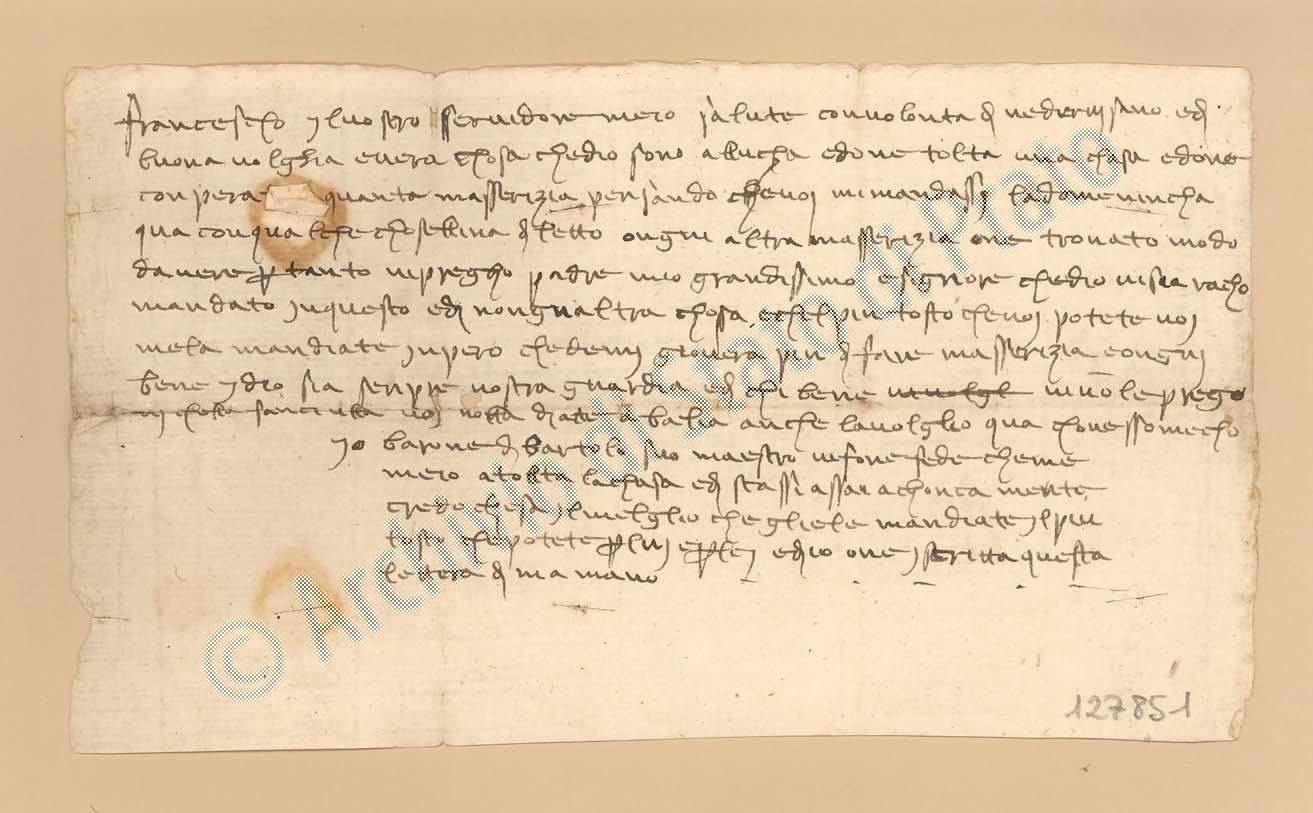 Francescho il vostro servidore Meio salute con volonta di vedervi sano e di
buona volghia e vera chosa chedio sono allucha edone tolta una chasa edone
conpera quanta masserizia pensando chevoi mi mandassi la domenincha
qua con qualche chosellina di letto ongni altra masserizia one trovato modo
davere per tanto vi pregho padre mio grandissimo e signiore chedio vi sia racho
mandato in questo e di nongni altra chosa e chel piu tosto chevoi potete voi
me la mandiate inpero che devi giovera piu di fare masserizia e ongni
bene idio sia senpre vostra guardia e di chi bene vi vuole prego
vi che voi diate a balia anche la volglio qua chon esso mecho
io Barone di Bartolo suo maestro vi fone fede cheme
Meio a tolta la chasa e di stassi assai achoncia mente
credo che sia il melglio che gliele mandiate il piu
tosto che potete per lui e per lei edio one iscritta questa
lettera di mia mano
127851
© Archivio di Stato di Prato